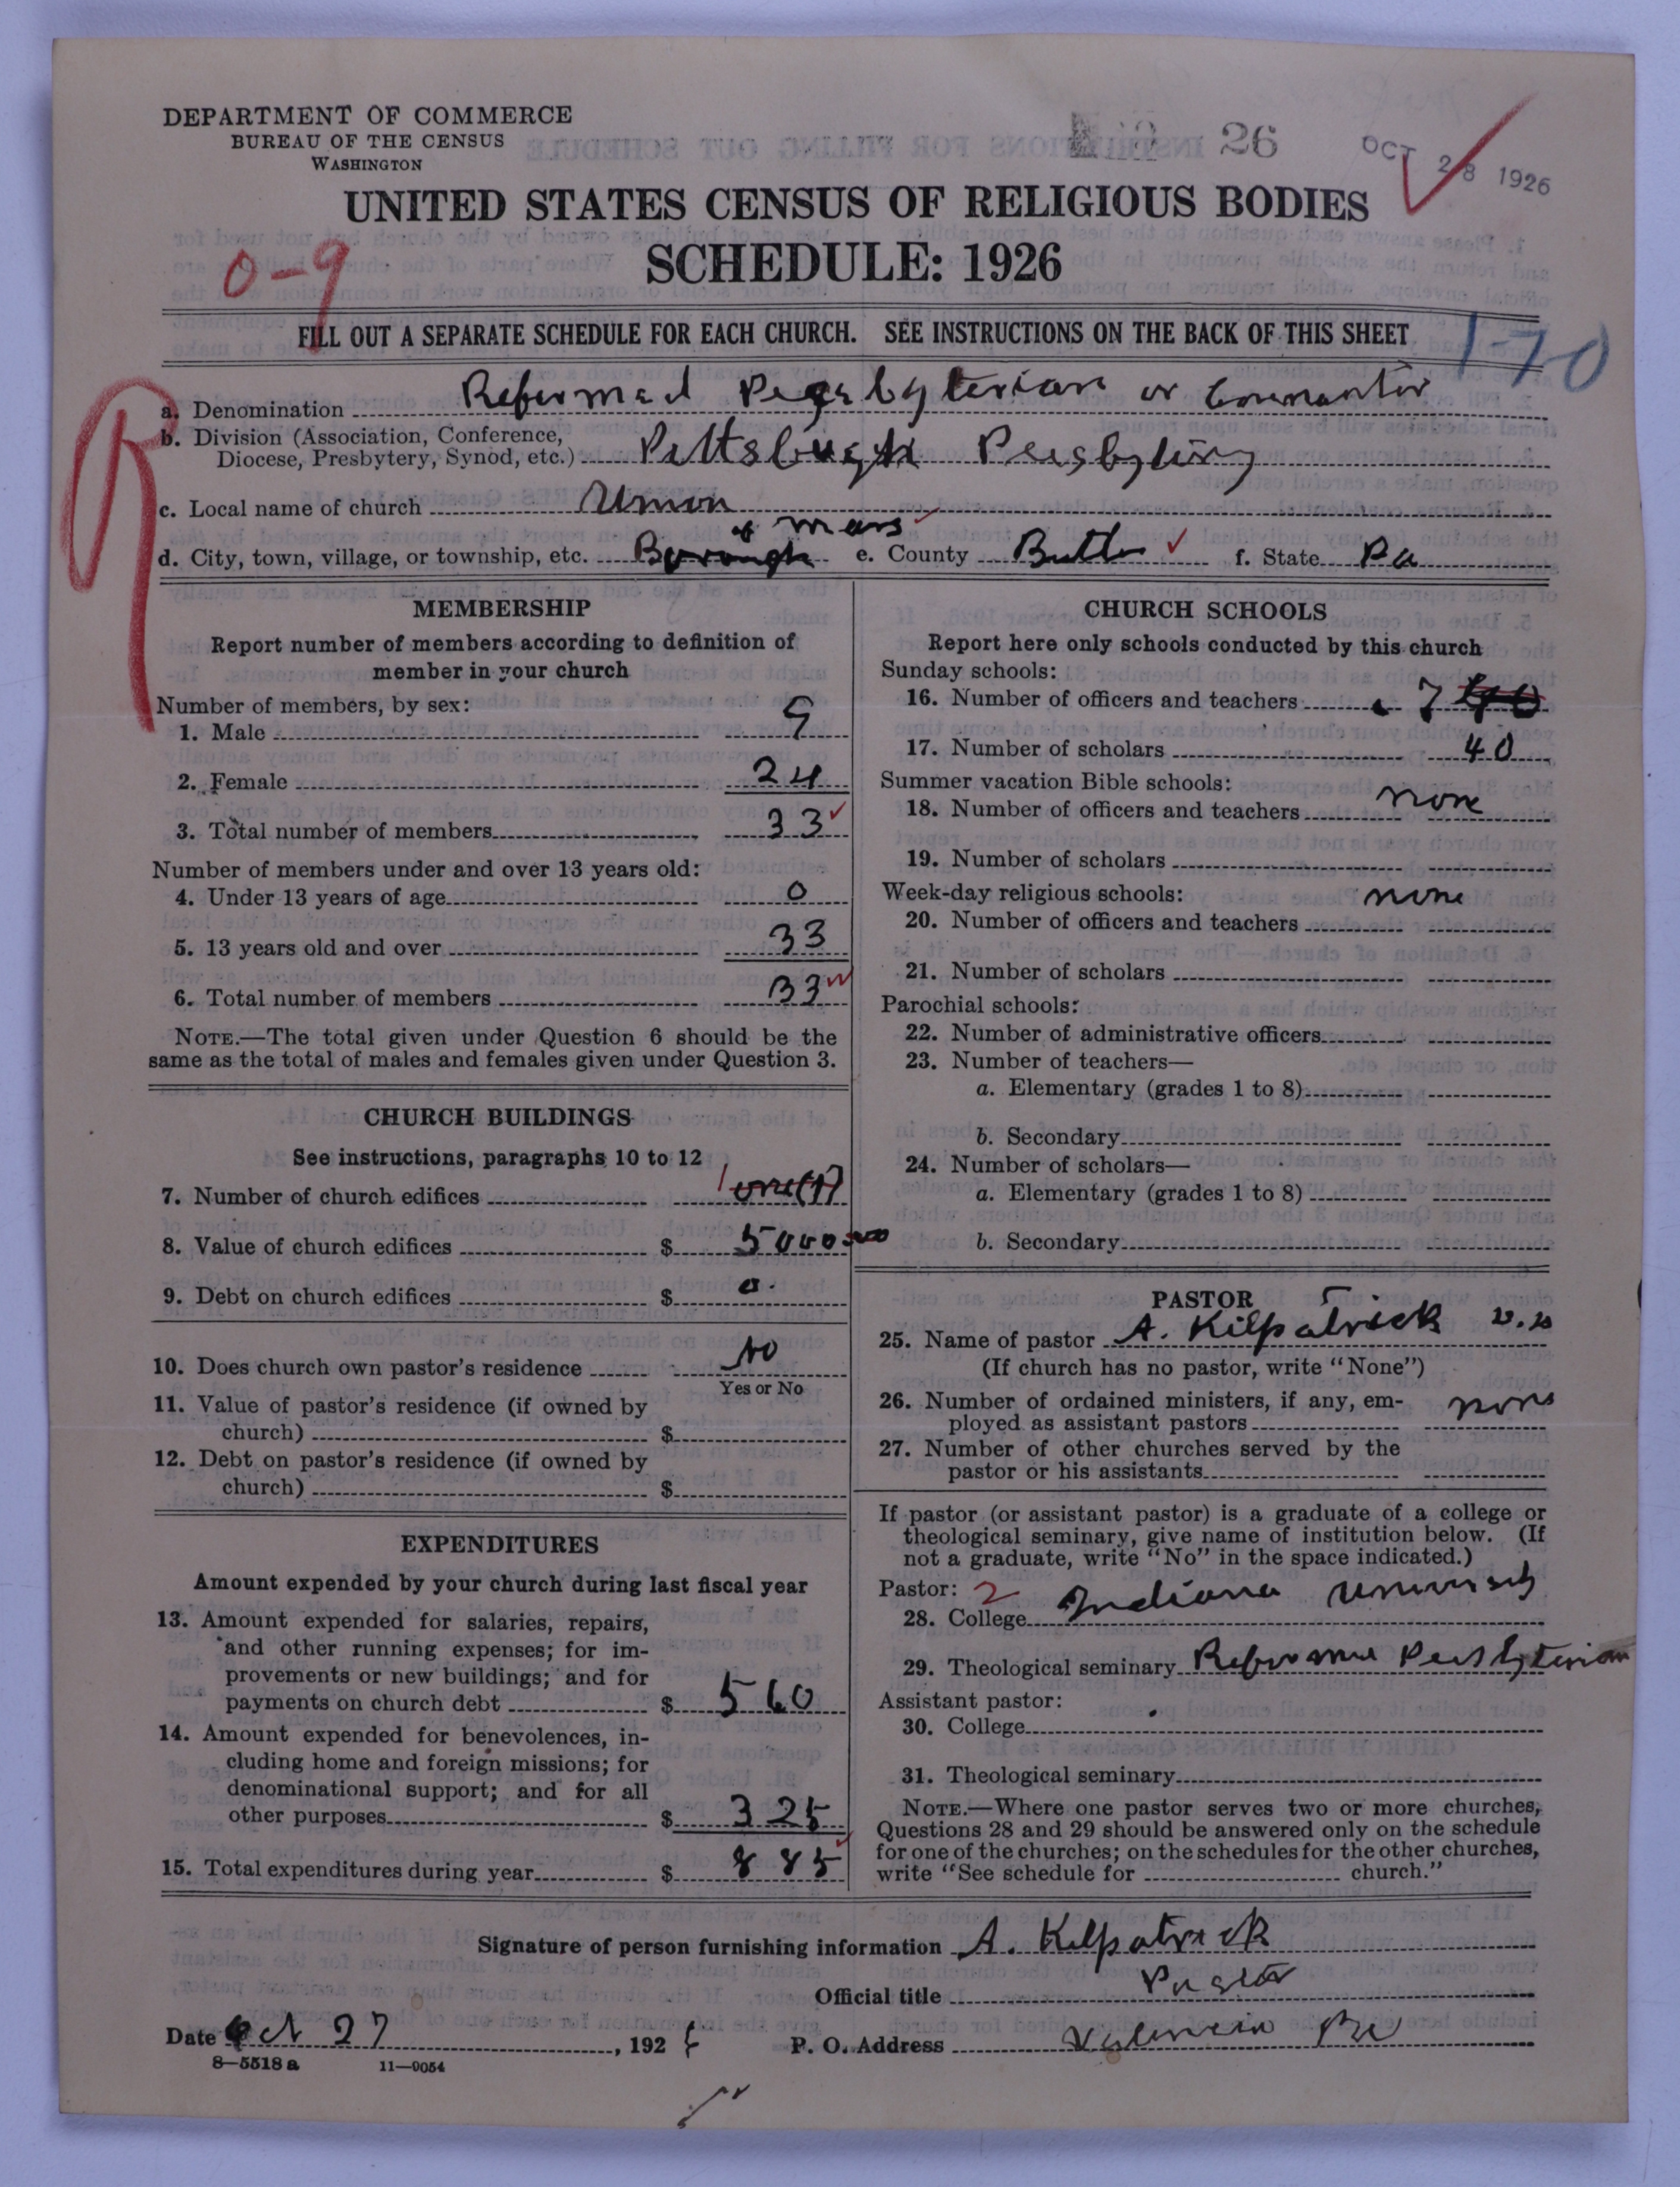 DEPARTMENT OF COMMERCE
BUREAU OF THE CENSUS
WASHINGTON
26
OCT 28 1926
UNITED STATES CENSUS OF RELIGIOUS BODIES
SCHEDULE: 1926
0-9
FILL OUT A SEPARATE SCHEDULE FOR EACH CHURCH. SEE INSTRUCTIONS ON THE BACK OF THIS SHEET
1-70
R
a. Denomination Reformed Presbyterian or Covenanter
b. Division (Association, Conference,
Diocese, Presbytery, Synod, etc.) Pittsburgh Presbytery
c. Local name of church Union
of Mars
d. City, town, village, or township, etc. Borough e. County Butler f. State Pa
MEMBERSHIP
Report number of members according to definition of
member in your church
Number of members, by sex:
1. Male 9
2. Female 24
3. Total number of members 33
Number of members under and over 13 years old:
4. Under 13 years of age 0
5. 13 years old and over 33
6. Total number of members 33
NOTE.—The total given under Question 6 should be the
same as the total of males and females given under Question 3.
CHURCH BUILDINGS
See instructions, paragraphs 10 to 12
7. Number of church edifices 1 one(1)
8. Value of church edifices $ 5000
9. Debt on church edifices $ 0
10. Does church own pastor's residence No
Yes or No
11. Value of pastor's residence (if owned by
church) $
12. Debt on pastor's residence (if owned by
church) $
EXPENDITURES
Amount expended by your church during last fiscal year
13. Amount expended for salaries, repairs,
and other running expenses; for im-
provements or new buildings; and for
payments on church debt $ 560
14. Amount expended for benevolences, in-
cluding home and foreign missions; for
denominational support; and for all
other purposes $ 325
15. Total expenditures during year $ 885
CHURCH SCHOOLS
Report here only schools conducted by this church
Sunday schools:
16. Number of officers and teachers 7 40
17. Number of scholars 40
Summer vacation Bible schools:
18. Number of officers and teachers none
19. Number of scholars
Week-day religious schools: none
20. Number of officers and teachers
21. Number of scholars
Parochial schools:
22. Number of administrative officers
23. Number of teachers—
a. Elementary (grades 1 to 8)
b. Secondary
24. Number of scholars—
a. Elementary (grades 1 to 8)
b. Secondary
PASTOR
25. Name of pastor A. Kilpatrick D.D.
(If church has no pastor, write "None")
26. Number of ordained ministers, if any, em-
ployed as assistant pastors none
27. Number of other churches served by the
pastor or his assistants
If pastor (or assistant pastor) is a graduate of a college or
theological seminary, give name of institution below. (If
not a graduate, write "No" in the space indicated.)
Pastor: 2
28. College Indiana University
29. Theological seminary Reformed Presbyterian
Assistant pastor:
30. College
31. Theological seminary
NOTE.—Where one pastor serves two or more churches,
Questions 28 and 29 should be answered only on the schedule
for one of the churches; on the schedules for the other churches,
write "See schedule for church."
Signature of person furnishing information A. Kilpatrick
Official title Pastor
Date Oct 27, 1926 P. O. Address Valencia Pa
8—5518 a 11—9054